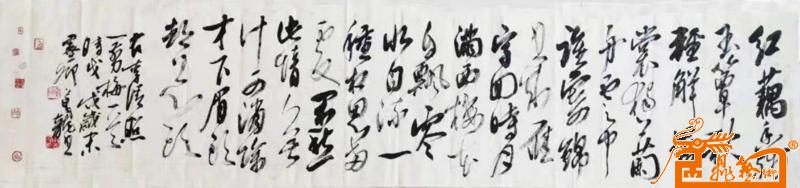 红藕香残
玉簟秋
轻解罗
裳独上兰
舟云中
谁寄锦
书来雁
字回时月
满西楼花
自飘零
水自流一
种相思两
处闲愁
此情无
计可消除
才下眉头
却上心头
右李清照
一剪梅一首
时戊戌岁末